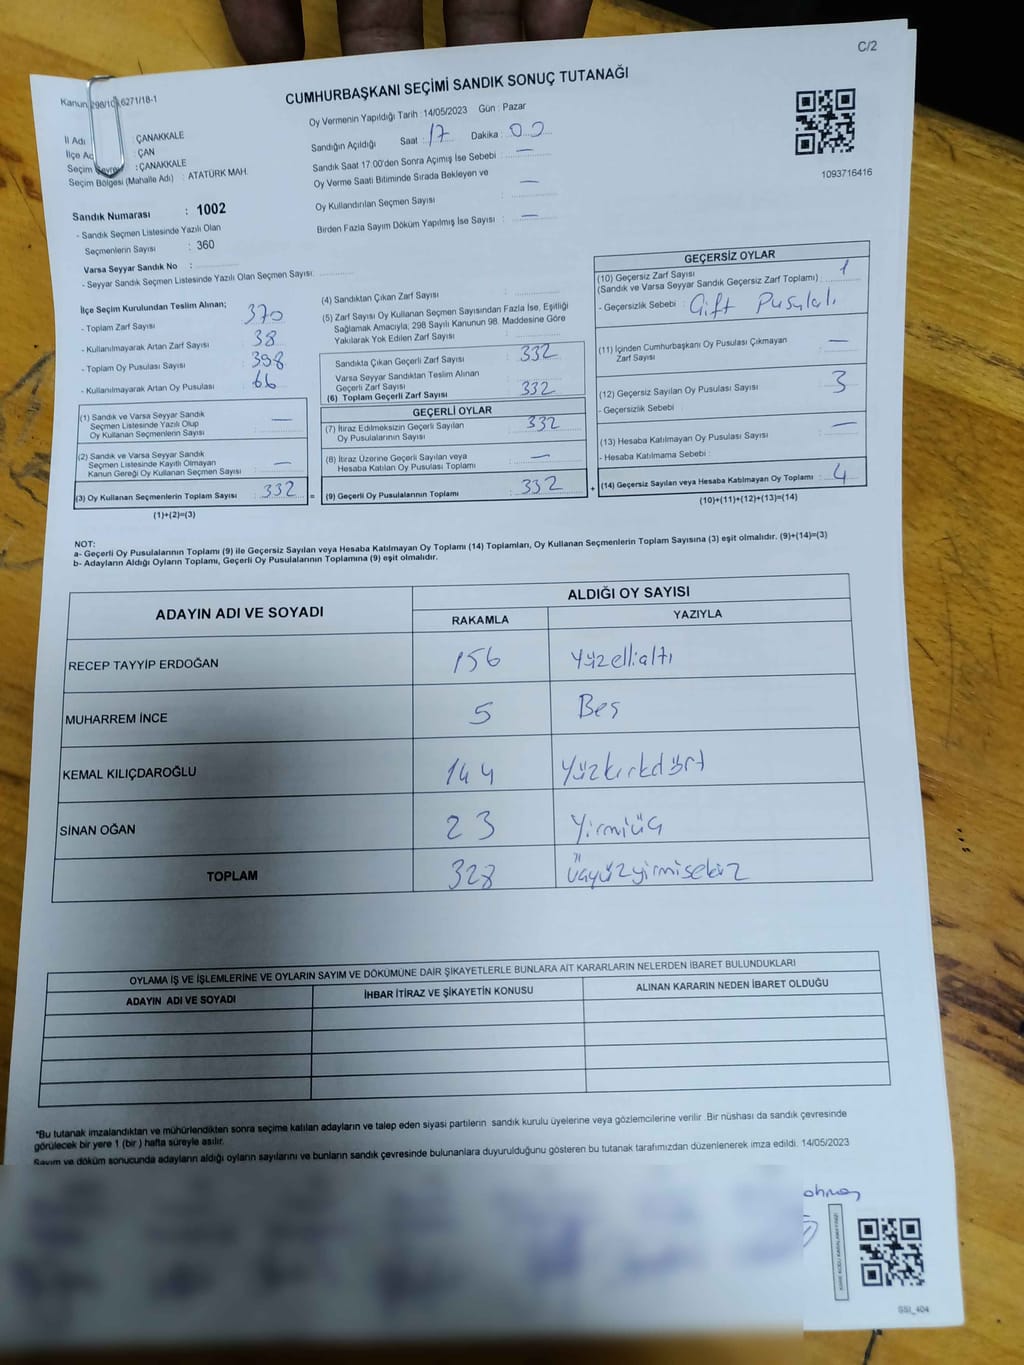 C/2
Kanun 298/10 6271/18-1
CUMHURBAŞKANI SEÇİMİ SANDIK SONUÇ TUTANAĞI
1093716416
İl Adı : ÇANAKKALE
İlçe Ad : ÇAN
Seçim Çevresi : ÇANAKKALE
Seçim Bölgesi (Mahalle Adı) : ATATÜRK MAH.
Sandık Numarası : 1002
- Sandık Seçmen Listesinde Yazılı Olan
Seçmenlerin Sayısı : 360
Varsa Seyyar Sandık No :
- Seyyar Sandık Seçmen Listesinde Yazılı Olan Seçmen Sayısı:
Oy Vermenin Yapıldığı Tarih : 14/05/2023 Gün : Pazar
Sandığın Açıldığı Saat : 17 Dakika : 00
Sandık Saat 17.00'den Sonra Açımış İse Sebebi : —
Oy Verme Saati Bitiminde Sırada Bekleyen ve
Oy Kullandırılan Seçmen Sayısı : —
Birden Fazla Sayım Döküm Yapılmış İse Sayısı : —
İlçe Seçim Kurulundan Teslim Alınan;
- Toplam Zarf Sayısı : 370
- Kullanılmayarak Artan Zarf Sayısı : 38
- Toplam Oy Pusulası Sayısı : 398
- Kullanılmayarak Artan Oy Pusulası : 66
(1) Sandık ve Varsa Seyyar Sandık
Seçmen Listesinde Yazılı Olup
Oy Kullanan Seçmenlerin Sayısı : —
(2) Sandık ve Varsa Seyyar Sandık
Seçmen Listesinde Kayıtlı Olmayan
Kanun Gereği Oy Kullanan Seçmen Sayısı : —
(3) Oy Kullanan Seçmenlerin Toplam Sayısı : 332 =
(1)+(2)=(3)
(4) Sandıktan Çıkan Zarf Sayısı :
(5) Zarf Sayısı Oy Kullanan Seçmen Sayısından Fazla İse, Eşitliği
Sağlamak Amacıyla; 298 Sayılı Kanunun 98. Maddesine Göre
Yakılarak Yok Edilen Zarf Sayısı :
Sandıkta Çıkan Geçerli Zarf Sayısı : 332
Varsa Seyyar Sandıktan Teslim Alınan
Geçerli Zarf Sayısı :
(6) Toplam Geçerli Zarf Sayısı : 332
GEÇERLİ OYLAR
(7) İtiraz Edilmeksizin Geçerli Sayılan
Oy Pusulalarının Sayısı : 332
(8) İtiraz Üzerine Geçerli Sayılan veya
Hesaba Katılan Oy Pusulası Toplamı : —
(9) Geçerli Oy Pusulalarının Toplamı : 332 +
GEÇERSİZ OYLAR
(10) Geçersiz Zarf Sayısı
(Sandık ve Varsa Seyyar Sandık Geçersiz Zarf Toplamı) : 1
- Geçersizlik Sebebi : Çift Pusulalı
(11) İçinden Cumhurbaşkanı Oy Pusulası Çıkmayan
Zarf Sayısı : —
(12) Geçersiz Sayılan Oy Pusulası Sayısı : 3
- Geçersizlik Sebebi :
(13) Hesaba Katılmayan Oy Pusulası Sayısı : —
- Hesaba Katılmama Sebebi :
(14) Geçersiz Sayılan veya Hesaba Katılmayan Oy Toplamı : 4
(10)+(11)+(12)+(13)=(14)
NOT:
a- Geçerli Oy Pusulalarının Toplamı (9) ile Geçersiz Sayılan veya Hesaba Katılmayan Oy Toplamı (14) Toplamları, Oy Kullanan Seçmenlerin Toplam Sayısına (3) eşit olmalıdır. (9)+(14)=(3)
b- Adayların Aldığı Oyların Toplamı, Geçerli Oy Pusulalarının Toplamına (9) eşit olmalıdır.
ADAYIN ADI VE SOYADI ALDIĞI OY SAYISI
RAKAMLA YAZIYLA
RECEP TAYYİP ERDOĞAN 156 Yüzellialtı
MUHARREM İNCE 5 Beş
KEMAL KILIÇDAROĞLU 144 Yüzkırkdört
SİNAN OĞAN 23 Yirmiüç
TOPLAM 328 Üçyüzyirmisekiz
OYLAMA İŞ VE İŞLEMLERİNE VE OYLARIN SAYIM VE DÖKÜMÜNE DAİR ŞİKAYETLERLE BUNLARA AİT KARARLARIN NELERDEN İBARET BULUNDUKLARI
ADAYIN ADI VE SOYADI İHBAR İTİRAZ VE ŞİKAYETİN KONUSU ALINAN KARARIN NEDEN İBARET OLDUĞU
*Bu tutanak imzalandıktan ve mühürlendikten sonra seçime katılan adayların ve talep eden siyasi partilerin sandık kurulu üyelerine veya gözlemcilerine verilir .Bir nüshası da sandık çevresinde
görülecek bir yere 1 (bir ) hafta süreyle asılır.
Sayım ve döküm sonucunda adayların aldığı oyların sayılarını ve bunların sandık çevresinde bulunanlara duyurulduğunu gösteren bu tutanak tarafımızdan düzenlenerek imza edildi. 14/05/2023
SSI_404